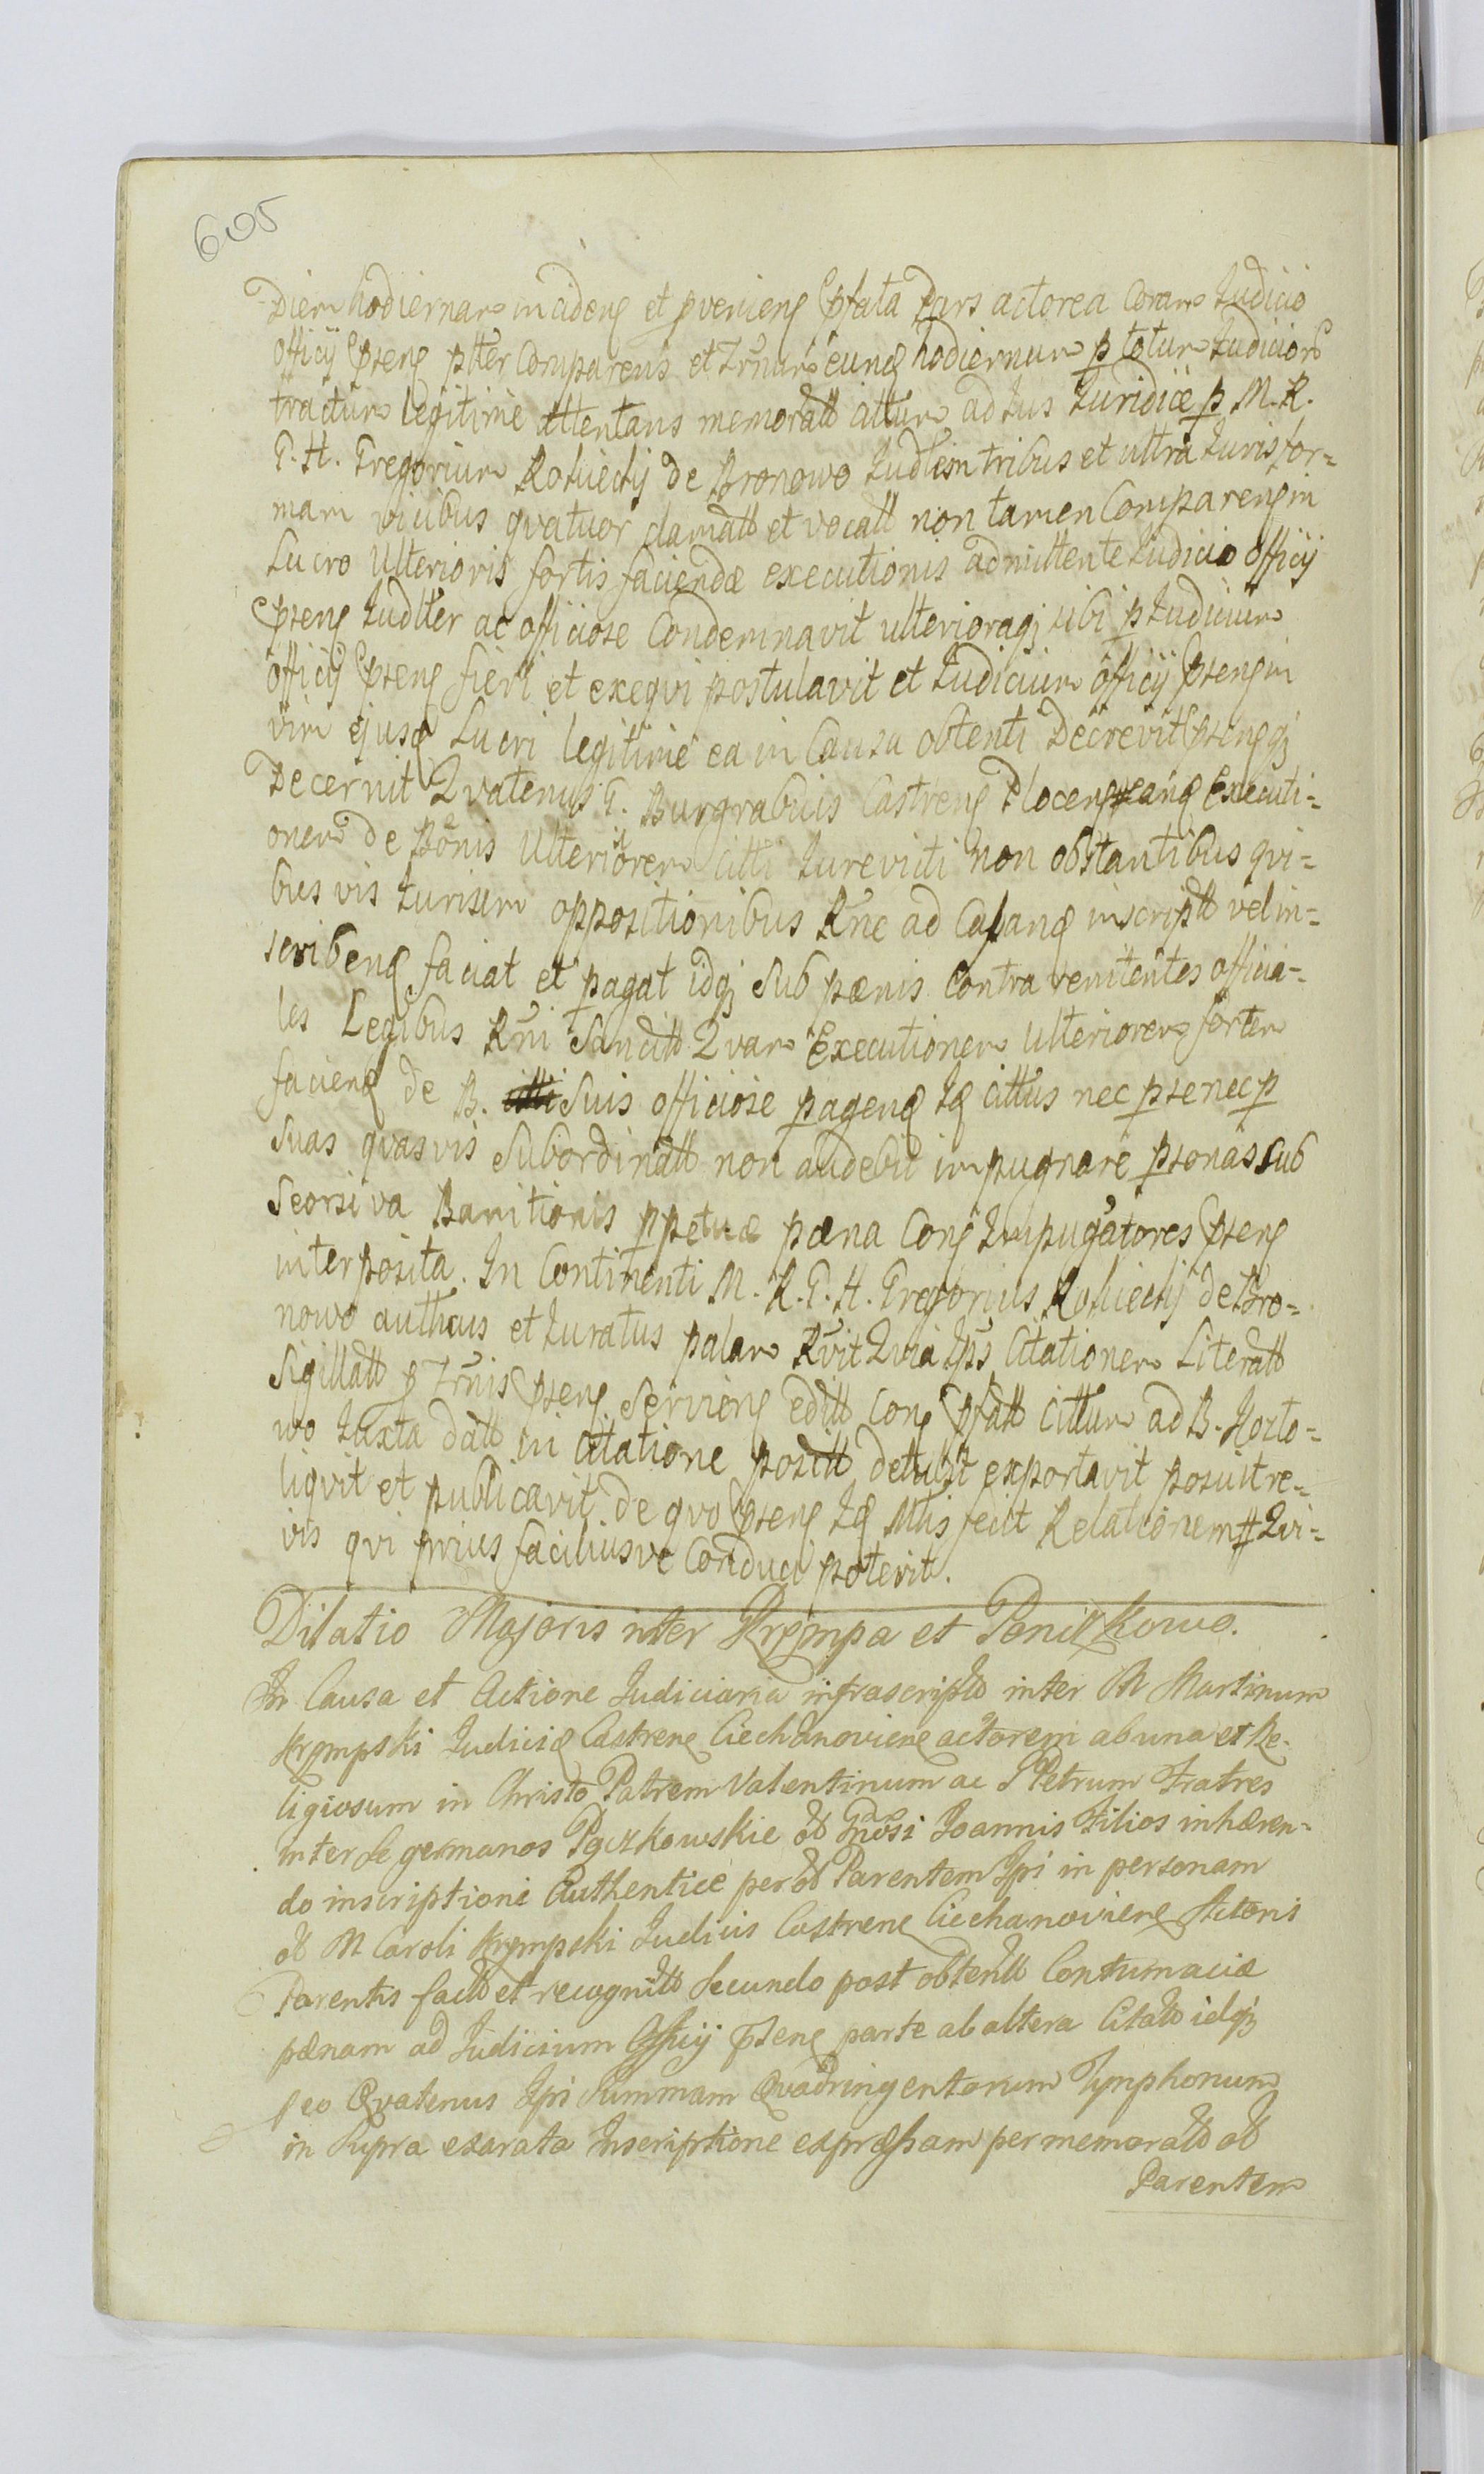 605
Diem hodiernam incidens et pveniens Pfata Pars actorea Coram Judicio
Officij Psens psterComparens et Trnum eund hodiernum p totum Judiciors
tractum legitime attentans memoratt cittum ad Jus Juridice p M. R.
G. H. Gregorium Kossiecky de Bronowo Judlem tribus et ultra Juris for=
mam vicibus qvatuor clamatt et vocatt non tamen Comparens in
Lucro Ulterioris fortis faciendæ executionis admittente Judicio officij
Psens Judlter ac officiose Condemnavit ulterioraq sibi p Judicium
officij Psens fieri et exeqvi postulavit et Judicium officij Psens in
vim ejusd Lucri legitime ea in Causa obtenti Decrevit Psensq
Decernit Qvatenus G. Burgrabius Castrens Plocens eand Executi=
onem de Bonis Ulteriorem citti Jurevicti non obstantibus qvi=
bus vis Jurisum oppositionibus Rne ad Caland inscriptt vel in=
scribend faciat et pagat idq sub pænis contra renitentes officia=
les Legibus Rni Sancitt Qvam Executionem ulteriorem fortem
faciend de B. suis officiose pagend Id cittus nec pse nec p
suas qvasvis Subordinatt non audebit impugnare psonas sub
Seorsiva Banitionis ppetuæ pæna Cons Impugatores Psens
interposita. In Continenti M. R. G. H. Gregorius Kossiecky de Bro=
nowo authcus et Juratus palam Rvit Qvia Jps Citationem Literatt
Sigillatt p Trnis Psens Serviens editt Cons Pfatt Cittum ad B. Horto=
wo Juxta datt in Citatione positt detulit exportavit posuit re=
liqvit et publicavit de qvo Psens Id Mtis fecit Relationem # Qvi=
vis qvi prius faciliusve Conduci poterit.
Dilatio Majoris inter Krempa et Paniczkowo.
In Causa et Actione Judiciaria infrascriptt inter M Martinum
Krympski Judicid Castrens Ciechanoviens actorem ab una et Re-
ligiosum in Christo Patrem Valentinum ac G Petrum Fratres
inter se germanos Paczkowskie ol Gnosi Joannis Filios inhæren-
do inscriptioni Authentice per ol Parentem Jpi in personam
ol M Caroli Krympski Judicis Castrens Ciechanoviens Actoris
Parentis factt et recognitt Secundo post obtentt Contumaciæ
pænam ad Judicium Officij Psens parte ab altera Citatt idq
peo Qvatenus Jpi Summam Qvadringentorum Tynphonum
in Supra exarata Inscriptione expressam per memoratt ol
Parentem